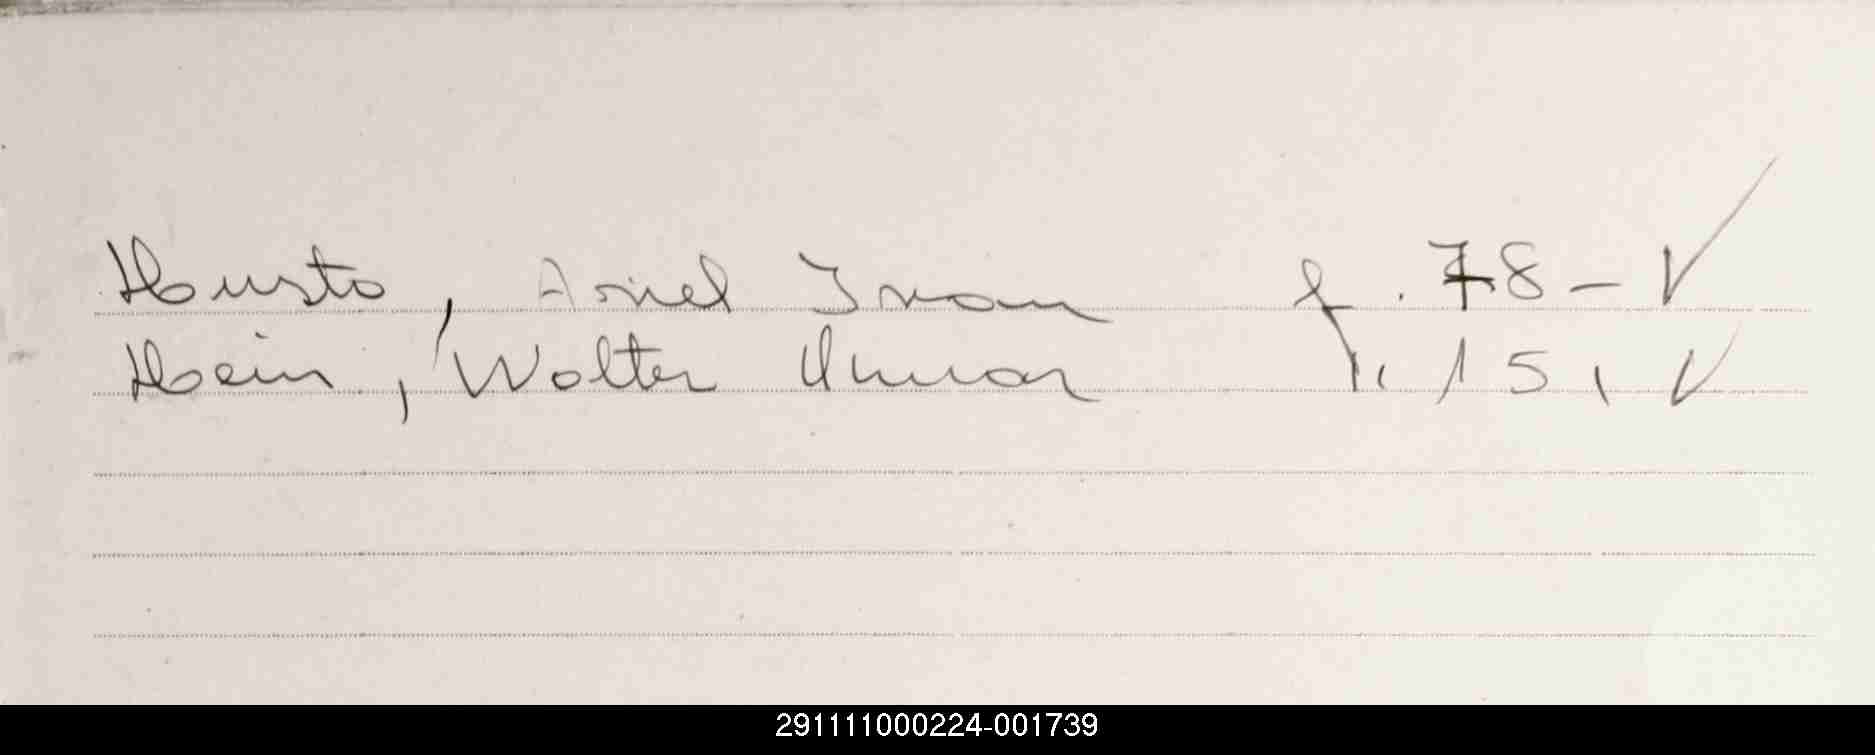 Husto, Ariel Ivan f. 78 - V
Hein, Walter Omar f. 15, V
291111000224-001739